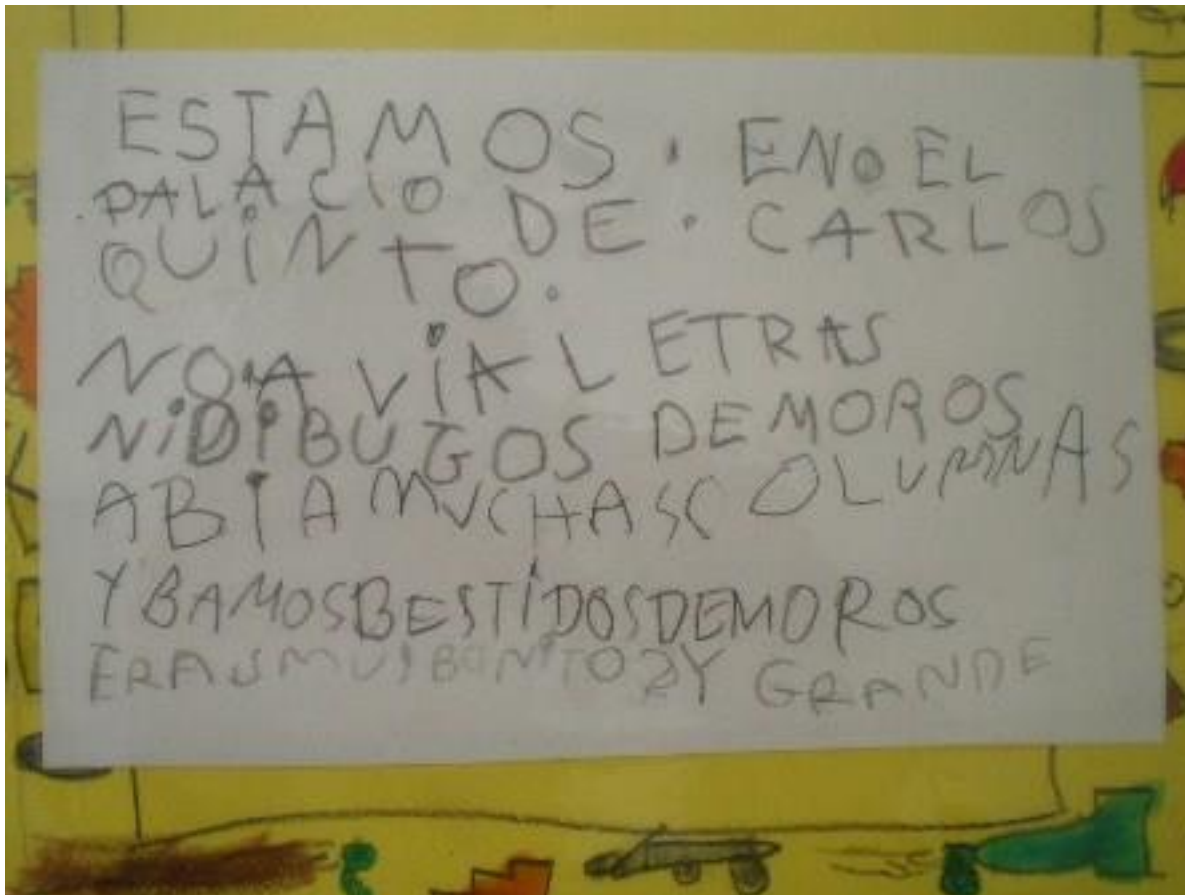 ESTAMOS . EN EL
PALACIO DE . CARLOS
QUINTO.
NO.AVIA LETRAS
NIDIBUGOS DEMOROS
ABIA MUCHASCOLUMNAS
YBAMOSBESTIDOSDEMOROS
Y GRANDE